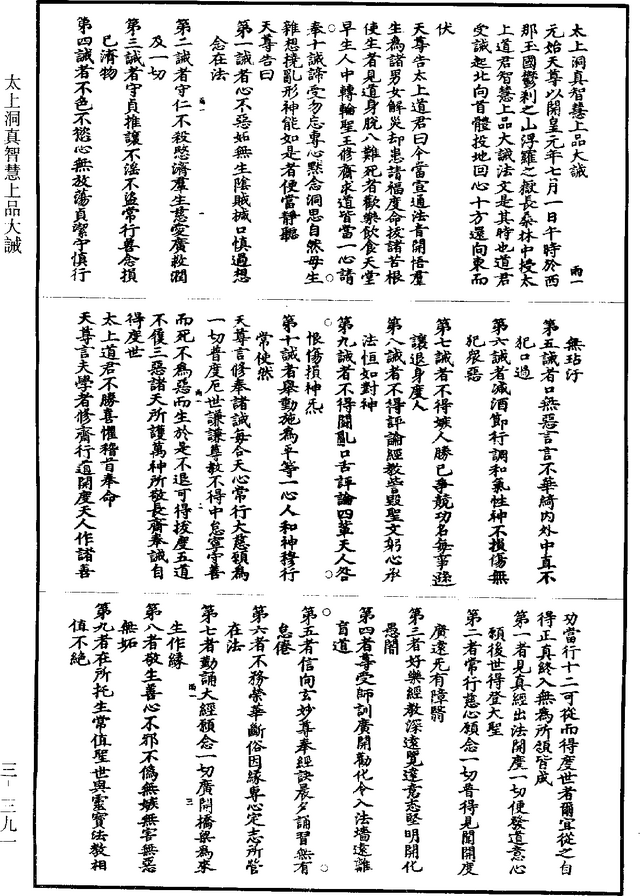 太上洞真智慧上品大誡
太上洞真智慧上品大誡
元始天尊以開皇元年七月一日午時於西
那玉國鬱刹之山浮羅之嶽長桑林中授太
上道君智慧上品大誡法文是其時也道君
受誡起北向首體投地回心十方還向東而
伏
天尊告太上道君曰今當宣通法音開悟羣
生為諸男女解災却患諸福度命拔諸苦根
使生者見道身脫八難死者歡樂飲食天堂
早生人中轉輪聖王修齋求道皆當一心請
奉十誡諦受勿忘專心默念洞思自然毋生
雜想撓亂形神能如是者便當靜聽
天尊告曰
第一誡者心不惡妬無生陰賊撿口慎過想
念在法
第二誡者守仁不殺愍濟羣生慈愛廣救潤
及一切
第三誡者守貞推讓不淫不盜常行善念損
已濟物
第四誡者不色不慾心無放蕩貞潔守慎行
無玷汙
第五誡者口無惡言言不華綺內外中直不
犯口過
第六誡者減酒節行調和氣性神不損傷無
犯眾惡
第七誡者不得嫉人勝已爭競功名每事遜
讓退身度人
第八誡者不得評論經教訾毀聖文躬心承
法恒如對神
第九誡者不得鬪亂口舌評論四輩天人咎
恨傷損神炁
第十誡者舉動施為平等一心人和神穆行
常使然
天尊言修奉諸誡每合天心常行大慈願為
一切普度厄世謙謙尊教不得中怠寧守善
而死不為惡而生於是不退可得拔度五道
不履三惡諸天所護萬神所敬長齋奉誡自
得度世
太上道君不勝喜懼稽首奉命
天尊言夫學者修齋行道開度天人作諸善
功當行十二可從而得度世者爾宜從之自
得正真終入無為所領皆成
第一者見真經出法開度一切便發道意心
願後世得登大聖
第二者常行慈心願念一切普得見聞開度
廣遠无有障翳
第三者好樂經教深遠覽達意志堅明開化
愚闇
第四者尊受師訓廣開勸化令入法墻遠離
盲道
第五者信向玄妙尊奉經訣晨夕誦習無有
怠倦
第六者不務榮華斷俗因緣專心定志所營
在法
第七者勤誦大經願念一切廣開橋梁為來
生作緣
第八者敬生善心不邪不偽無嫉無害無惡
無妬
第九者在所托生常值聖世與靈寶法教相
值不絕
三－三九一